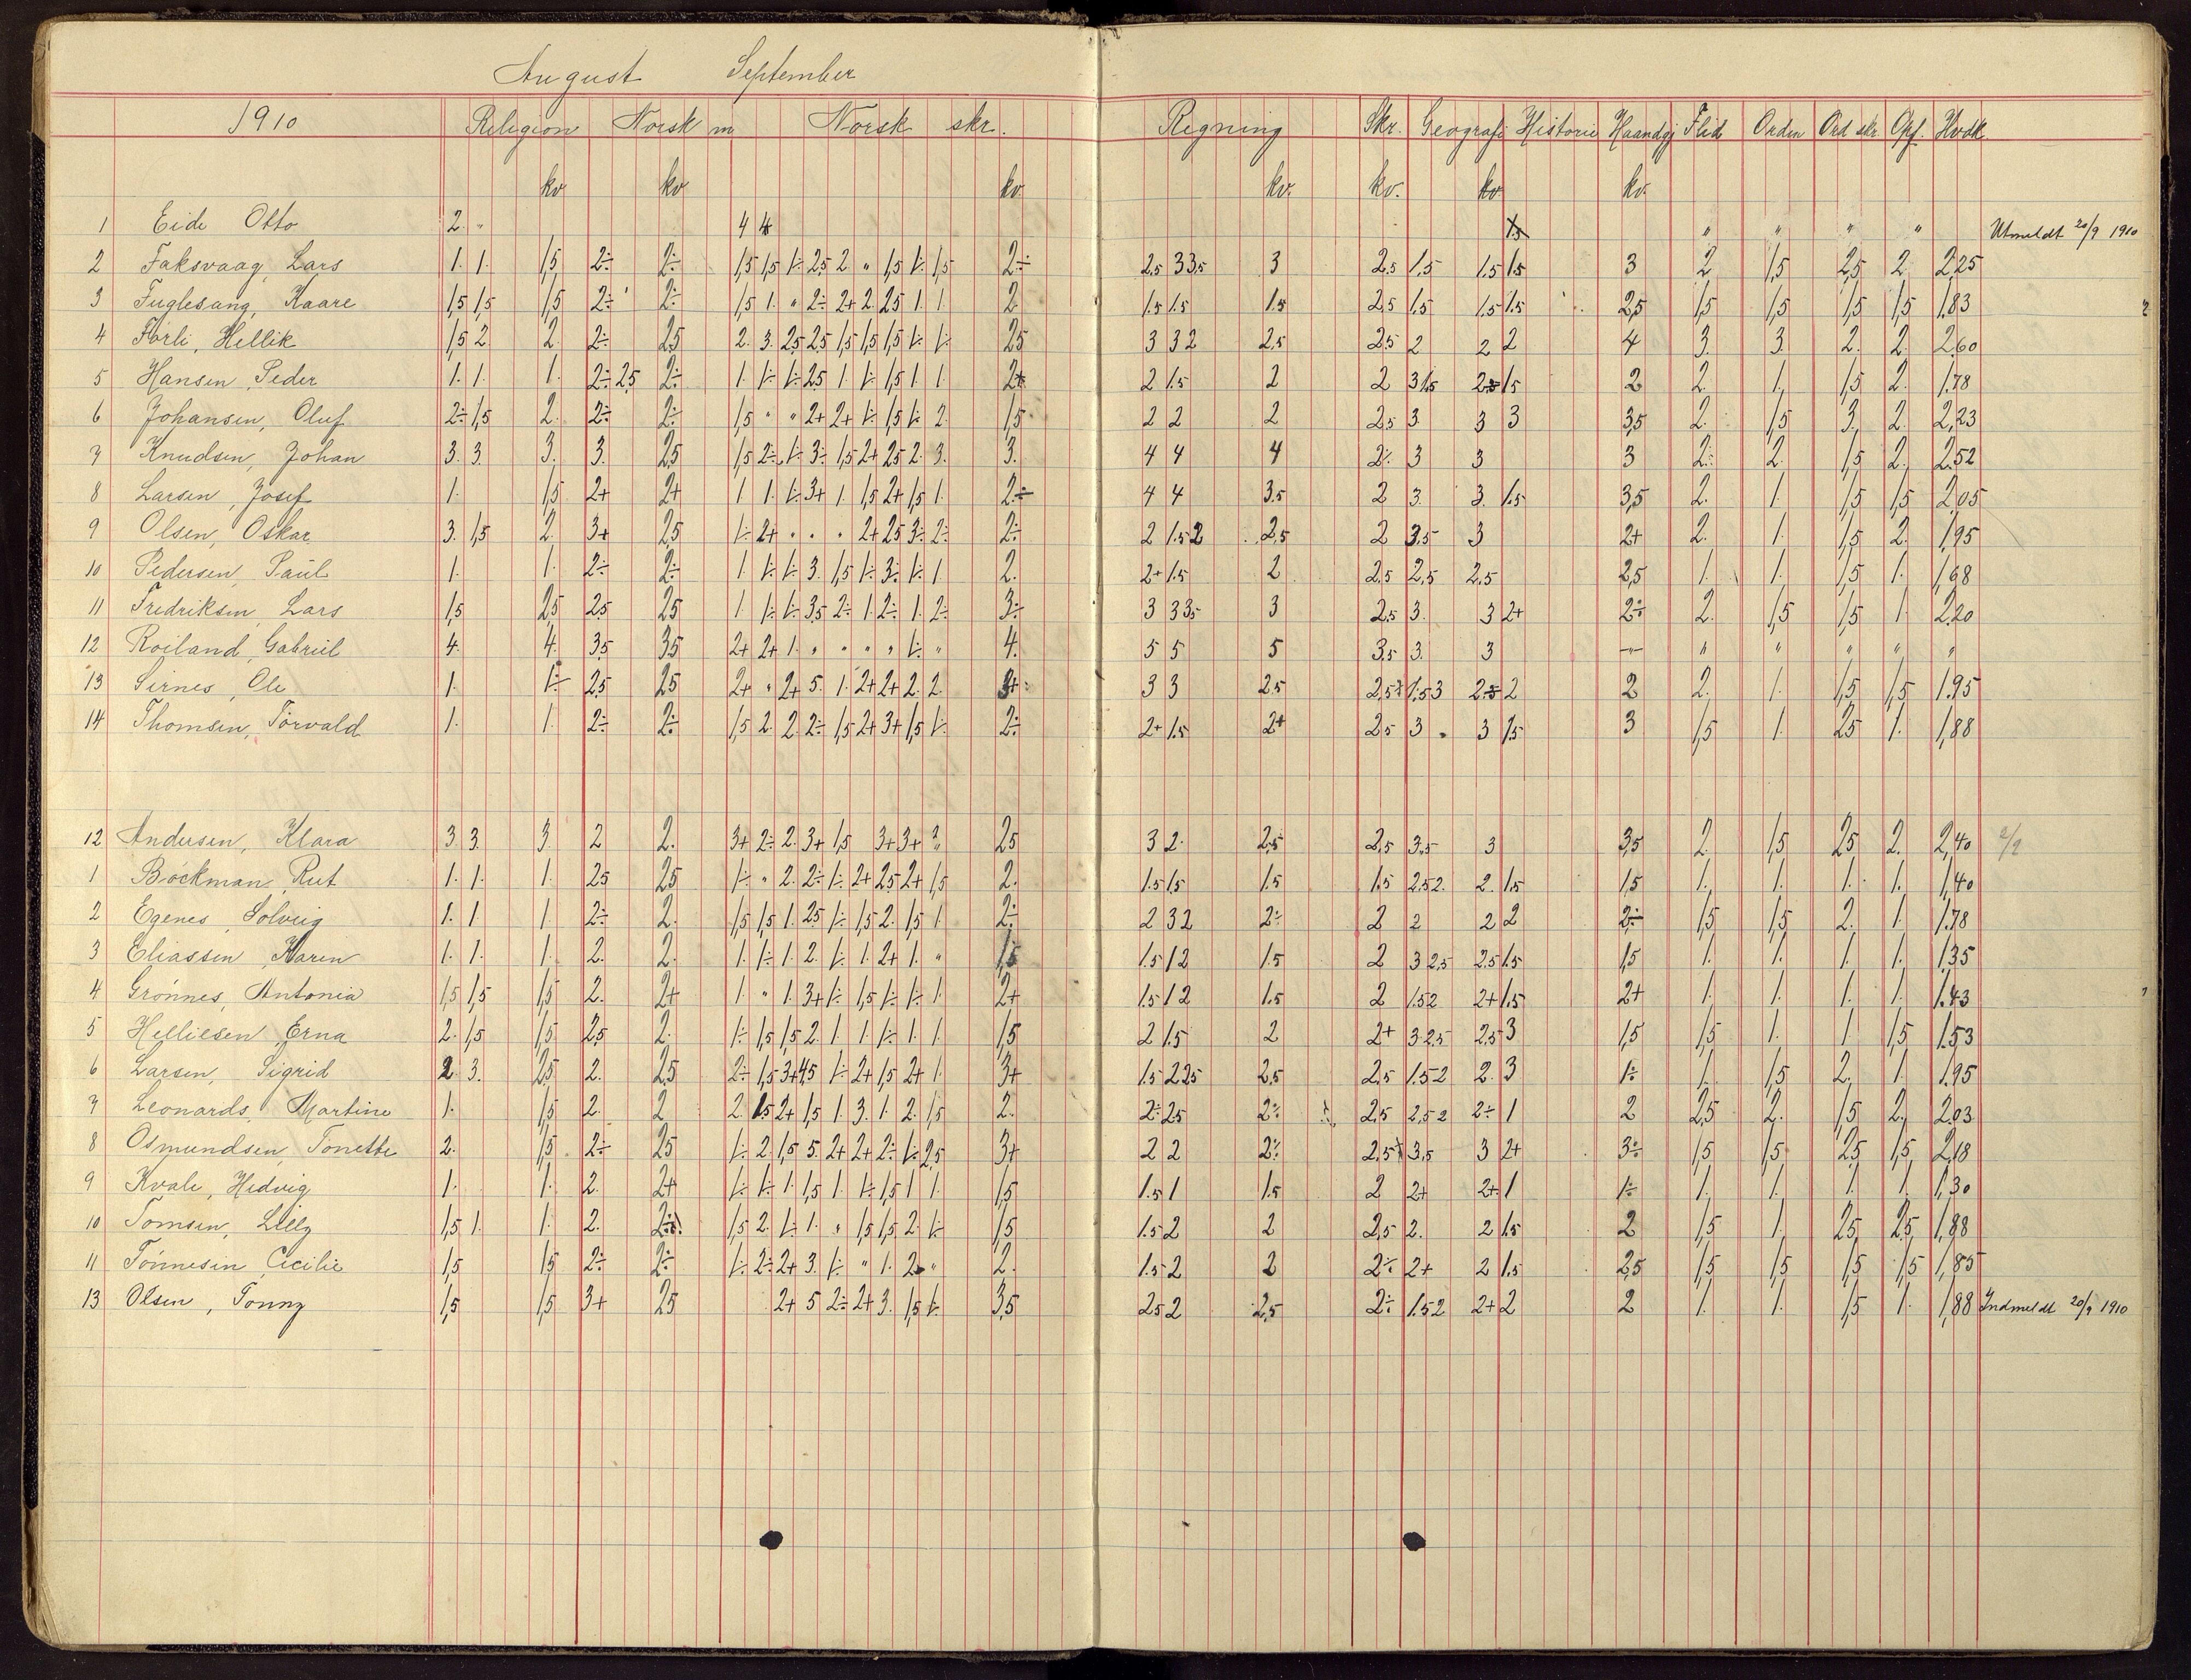 August September
1910 Religion Norsk m Norsk skr. Regning Skr. Geografi Historie Haandgj Flid Orden Ord skr. Opf. Hvdk
kv kv kv. kv. kv. kv. kv.
1 Eide Otto 2. " 4 4 " " " " Utmeldt 20/9 1910
2 Faksvaag, Lars 1. 1. 1,5 2÷ 2÷ 1,5 1,5 1÷ 2,5 2 " 1,5 1÷ 1,5 2÷ 2,5 3 3,5 3 2,5 1,5 1.5 1.5 3 2 1,5 2,5 2 2,25
3 Fuglesang, Kaare 1,5 1,5 1,5 2÷ 2÷ 1,5 1. " 2÷ 2+ 2. 2,5 1. 1 2 1.5 1.5 1.5 2,5 1.5 1.5 1.5 2,5 1,5 1,5 1,5 1,5 1.83
4 Førli, Hellik 1,5 2 2. 2÷ 2,5 2. 3. 2,5 2,5 1,5 1,5 1,5 1÷ 1÷ 2,5 3 3 2 2,5 2,5 2 2 2 4 3. 3. 2. 2. 2,60
5 Hansen, Peder 1. 1. 1. 2÷ 2,5 2÷ 1. 1÷ 1÷ 2,5 1. 1÷ 1,5 1. 1 2+ 2 1.5 2 2 3 1.5 2.5 1.5 2 2. 1. 1,5 2. 1.78
6 Johansen, Oluf 2÷ 1,5 2. 2÷ 2÷ 1,5 " " 2+ 2+ 1÷ 1,5 1÷ 2. 1,5 2 2 2 2,5 3. 3 3 3,5 2. 1,5 3. 2. 2,23
7 Knudsen, Johan 3. 3. 3. 3. 2,5 1,5 2÷ 1÷ 3÷ 1,5 2+ 2,5 2. 3. 3. 4 4 4 2÷ 3 3 3 2÷ 2. 1,5 2. 2.52
8 Larsen, Josef 1. 1,5 2+ 2+ 1 1. 1÷ 3+ 1. 1,5 2+ 1,5 1. 2÷ 4 4 3.5 2 3. 3. 1.5 3,5 2. 1. 1,5 1,5 2,05
9 Olsen, Oskar 3. 1,5 2. 3+ 2,5 1÷ 2+ " " " 2+ 2,5 3÷ 2÷ 2÷ 2 1.5 2 2,5 2 3.5 3 2+ 2. 1. 1,5 2. 1,95
10 Pedersen, Paul 1. 1. 2÷ 2÷ 1. 1÷ 1÷ 3. 1,5 1÷ 3÷ 1÷ 1. 2. 2+ 1.5 2 2,5 2,5 2,5 2,5 1. 1. 1,5 1. 1,68
11 Fredriksen, Lars 1,5 2,5 2,5 2,5 1 1÷ 1÷ 3,5 2÷ 1. 2÷ 1. 2÷ 3÷ 3 3 3,5 3 2,5 3. 3 2+ 2÷ 2. 1,5 1,5 1 2,20
12 Roiland, Gabriel 4. 4. 3,5 3,5 2+ 2+ 1. " " " " 1÷ " 4. 5 5 5 3.5 3. 3 —"— " " " " "
13 Sirnes, Ole 1. 1÷ 2,5 2,5 2+ " 2+ 5. 1. 2+ 2+ 2. 2. 3+ 3 3 2.5 2,5+ 1.5 3 2.5 2 2 2. 1. 1,5 1,5 1.95
14 Thomsen, Torvald 1. 1. 2÷ 2÷ 1,5 2. 2. 2÷ 1,5 2+ 3+ 1,5 1÷ 2÷ 2+ 1.5 2+ 2,5 3 3 1.5 3 1,5 1. 2,5 1. 1,88
12 Andersen, Klara 3. 3. 3. 2 2. 3+ 2÷ 2. 3+ 1,5 3+ 3+ 2,5 3 2. 2,5 2,5 3,5 3 3,5 2. 1,5 2,5 2. 2,40 2/9
1 Bøckman, Rut 1. 1. 1. 2,5 2,5 1÷ " 2. 2÷ 1÷ 2+ 2,5 2+ 1,5 2. 1.5 1.5 1.5 1.5 2.5 2. 2. 1.5 1,5 1. 1. 1. 1. 1,40
2 Egenes, Solveig 1. 1. 1. 2÷ 2. 1,5 1,5 1. 2,5 1÷ 1,5 2. 1,5 1. 2÷ 2 3 2 2÷ 2 2 2 2 2÷ 1,5 1,5 2. 1. 1.78
3 Eliassen, Karen 1. 1. 1. 2. 2. 1. 1÷ 1. 2. 1÷ 1. 2+ 1. " 1,5 1.5 1 2 1.5 2 3 2,5 2.5 1.5 1,5 1. 1. 1. 1. 1.35
4 Grønnes, Antonia 1,5 1,5 1,5 2. 2+ 1. " 1. 3+ 1÷ 1,5 1÷ 1÷ 1. 2+ 1.5 1 2 1.5 2 1.5 2 2+ 1.5 2+ 1. 1. 1. 1. 1.43
5 Helliesen, Erna 2. 1,5 1,5 2,5 2. 1÷ 1,5 1,5 2. 1 1. 1÷ 1. 1. 1,5 2 1.5 2 2+ 3 2.5 2.5 3 1,5 1,5 1. 1. 1,5 1.53
6 Larsen, Sigrid 2 3. 2,5 2. 2,5 2÷ 1,5 3+ 4,5 1÷ 2+ 1,5 2+ 1. 3+ 1.5 2 2,5 2,5 2,5 1.5 2 2. 3 1÷ 1. 1,5 2. 1. 1.95
7 Leonards, Martine 1. 1,5 2. 2 2. 1,5 2+ 1,5 1. 3. 1. 2. 1,5 2. 2÷ 2,5 2÷ 2,5 2,5 2 2÷ 1 2 2,5 2. 1,5 2. 2.03
8 Osmundsen, Tonette 2. 1,5 2÷ 2,5 1÷ 2. 1,5 5. 2+ 2+ 2÷ 1÷ 2,5 3+ 2 2 2÷ 2,5+ 3,5 3 2+ 3÷ 1,5 1,5 2,5 1,5 2,18
9 Kvale, Hedvig 1. 1. 2. 2+ 1÷ 1÷ 1. 1,5 1. 1÷ 1,5 1. 1. 1,5 1.5 1 1.5 2 2+ 2+ 1 1÷ 1. 1. 1. 1. 1,30
10 Tomsen, Lilly 1,5 1. 1. 2. 2÷ 1,5 2. 1÷ 1. " 1,5 1,5 2. 1÷ 1,5 1.5 2 2 2,5 2. 2 1.5 2 1,5 1. 2,5 2,5 1,88
11 Tønnesen, Cecilie 1,5 1,5 2÷ 2÷ 1÷ 2÷ 2+ 3. 1÷ " 1. 2. " 2. 1.5 2 2 2÷ 2+ 2 1.5 2,5 1,5 1,5 1,5 1,5 1,85
13 Olsen, Tonny 1,5 1,5 3+ 2,5 2+ 5 2÷ 2+ 3. 1,5 1÷ 3,5 2.5 2 2,5 2÷ 1.5 2 2+ 2 2 1. 1. 1,5 1. 1,88 Indmeldt 20/9 1910